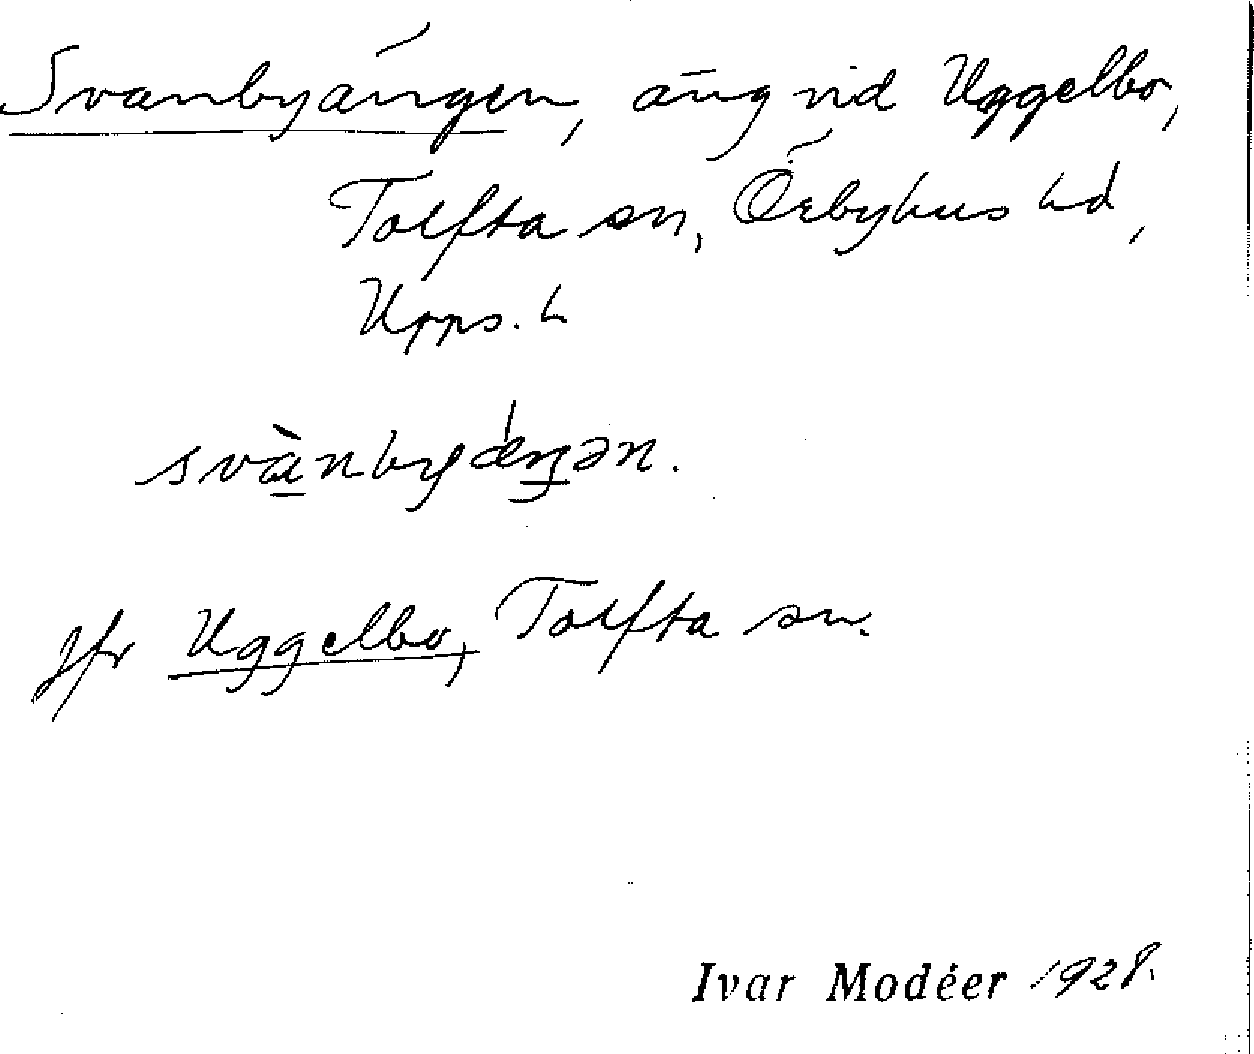 Svanbyängen, äng vid Uggelbo,
Tolfta sn, Örbyhus hd,
Upps. l.
svànbyǽŋən.
Jfr Uggelbo, Tolfta sn.
Ivar Modéer 1928.